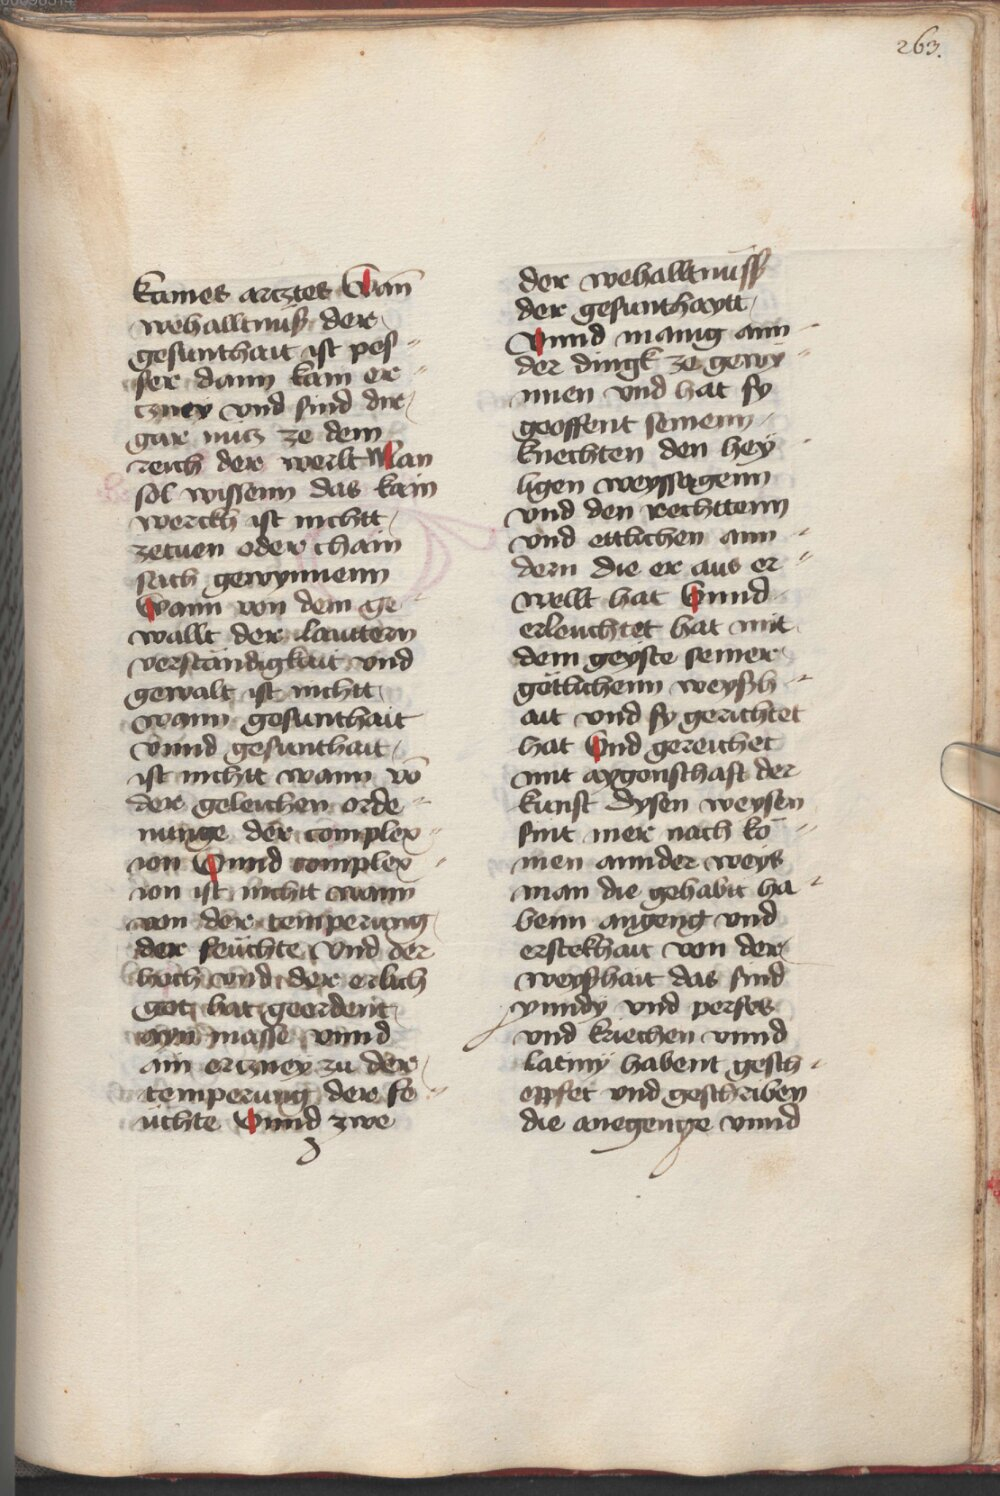 263.
kaines arcztes Wan̅
wehalltnuß der
gesunthait ist pes-
ser dann kain er-
czney vnd sind dir
gar nucz ze dem
reich der werlt Man
sol wissenn das kain
werckh ist nichtt
zetuen oder chain
sach gewynnenn
Wann von dem ge-
wallt der lauttern
verständigkait vnd
gewalt ist nichtt
wann gesunthait
vnnd gesunthait
ist nichtt wann vo̅
der geleichen orde-
nunge der complex-
ion Vnnd complex-
ion ist nichtt wann
von der temperung
der feüchte vnd der
hoch vnd der erlich
got hat geordent
ayn masse vnnd
ain erczney zu der
temperung der fe-
üchte Vnnd zwe
der wehalltnuss
der gesunthaytt
Vnnd manig ann-
der dingk ze gewy-
nnen vnd hat sy
geoffent seinenn
knechten den hey-
ligen weyssagenn
vnd den rechttenn
vnd ettlichen ann-
dern die er aus er-
wellt hat Vnnd
erleuchtet hat mit
dem geyste seiner
götlichenn weyßh-
ait vnd sy gerichtet
hat Vnd gereichet
mit aygenschaft der
kunst dysen weysen
sint mer nach ko̅-
men annder weys
man die gehabt ha-
benn angeng vnd
ersteckhait von der
weyßhait das sind
yundy vnd perses
vnd kriechen vnnd
latiny habent gesch-
epfet vnd geschriben
die anegenge vnnd